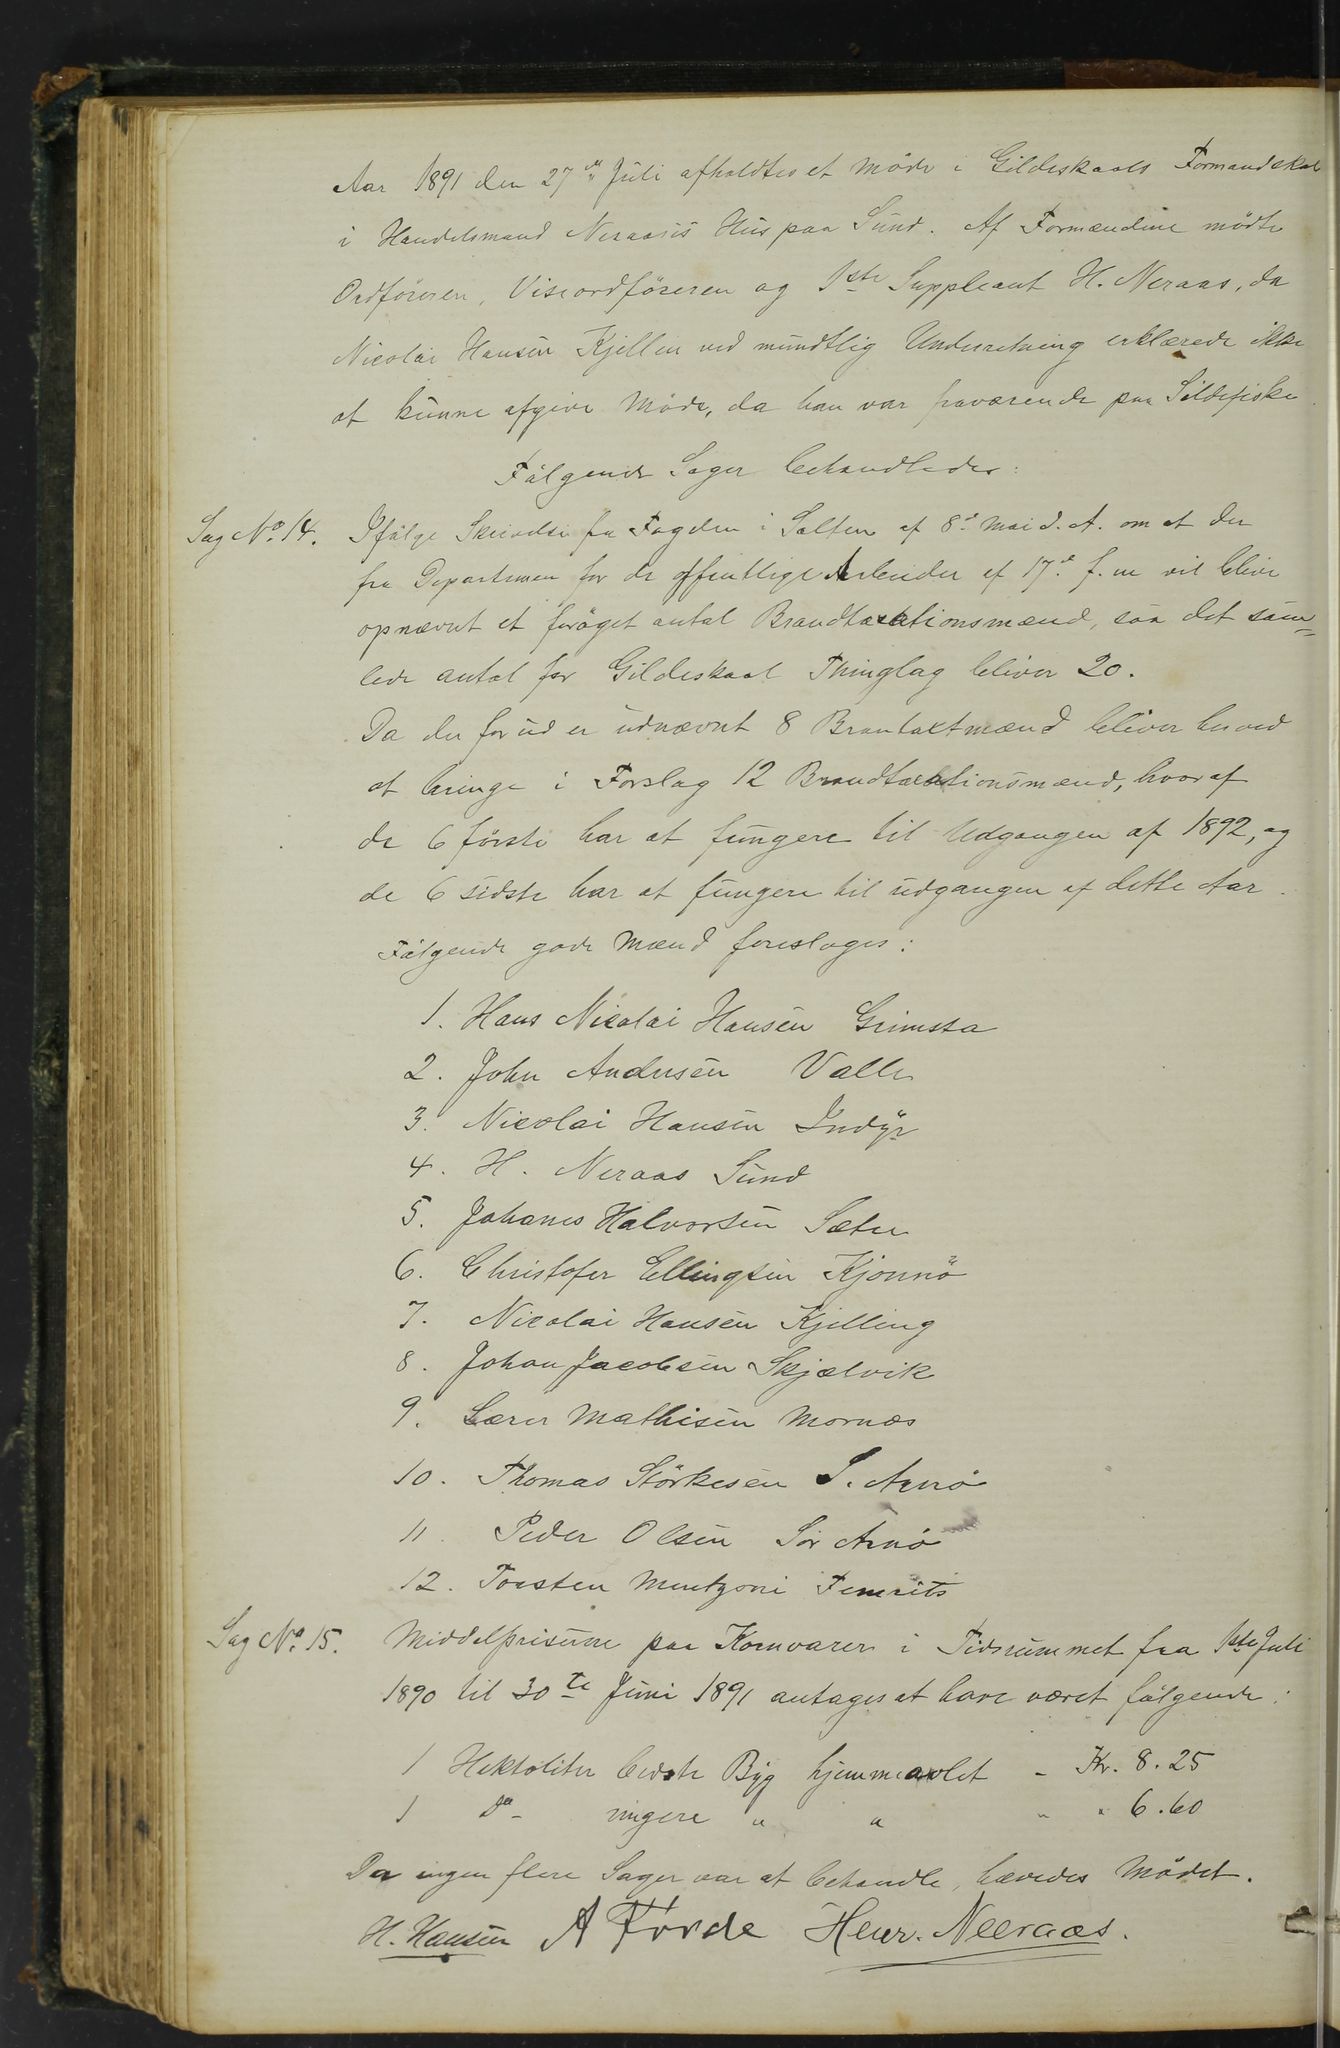 Aar 1891 den 27de Juli afholdtes et Møde i Gildeskaals Formandskab
i Handelsmand Neraas's Hus paa Sund. Af Formændene mødte
Ordføreren, Viseordføreren og 1ste Suppleant H. Neraas, da
Nicolai Hansen Kjellen ved mundtlig Underretning erklærede ikke
at kunne afgive Møde, da han var fraværende paa Sildefiske.
Følgende Sager behandledes:
Sag No. 14. Ifølge Skrivelse fra Fogden i Salten af 8de Mai d. A. om at der
fra Departemen for de offentlige Arbeider af 17de f. m vil blive
opnævnt et forøget antal Brandtaxationsmænd, saa det sam=
lede antal for Gildeskaal Thinglag bliver 20.
Da der forud er udnævnt 8 Brantaxtmænd bliver herved
at bringe i Forslag 12 Brandtaxationsmænd, hvoraf
de 6 første har at fungere til Udgangen af 1892, og
de 6 sidste har at fungere til udgangen af dette Aar.
Følgende gode Mænd foreslages:
1. Hans Nicolai Hansen Grimsta
2. John Andersen Valle
3. Nicolai Hansen Indyr
4. H. Neraas Sund
5. Johanes Halvorsen Sæter
6. Christofer Ellingsen Kjønnø
7. Nicolai Hansen Kjelling
8. Johan Jacobsen Skjælvik
9. Lærer Mathisen Mornæs
10. Thomas Störkesen S. Arnø
11 Peder Olsen Sør Arnø
12. Torsten Mentzoni Femris
Sag No. 15. Middelpriserne paa Kornvarer i Tidsrummet fra 1ste Juli
1890 til 30te Juni 1891 antages at have været følgende:
1 Hektoliter bedste Byg hjemmeavlet - Kr. 8.25
1 do - ringere " " " " 6.60
Da ingen flere Sager var at behandle, hævedes Mødet.
H. Hansen A Førde Henr. Neeraas.